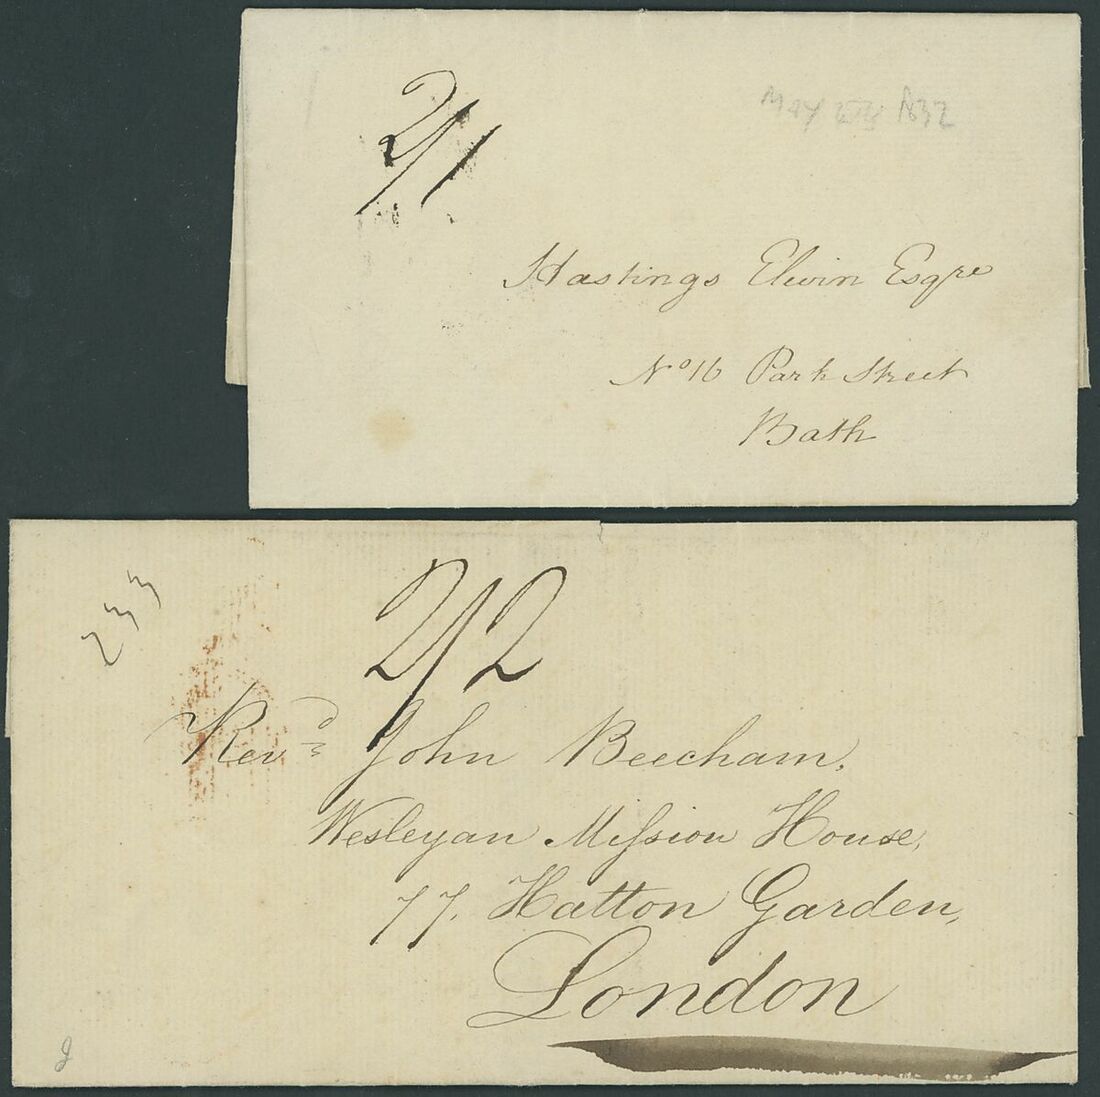 2/1
MAY 1832
Hastings Elwin Esqre
No 16 Park Street
Bath
233
2/2
Revd John Beecham,
Wesleyan Miſsion House,
77. Hatton Garden,
London